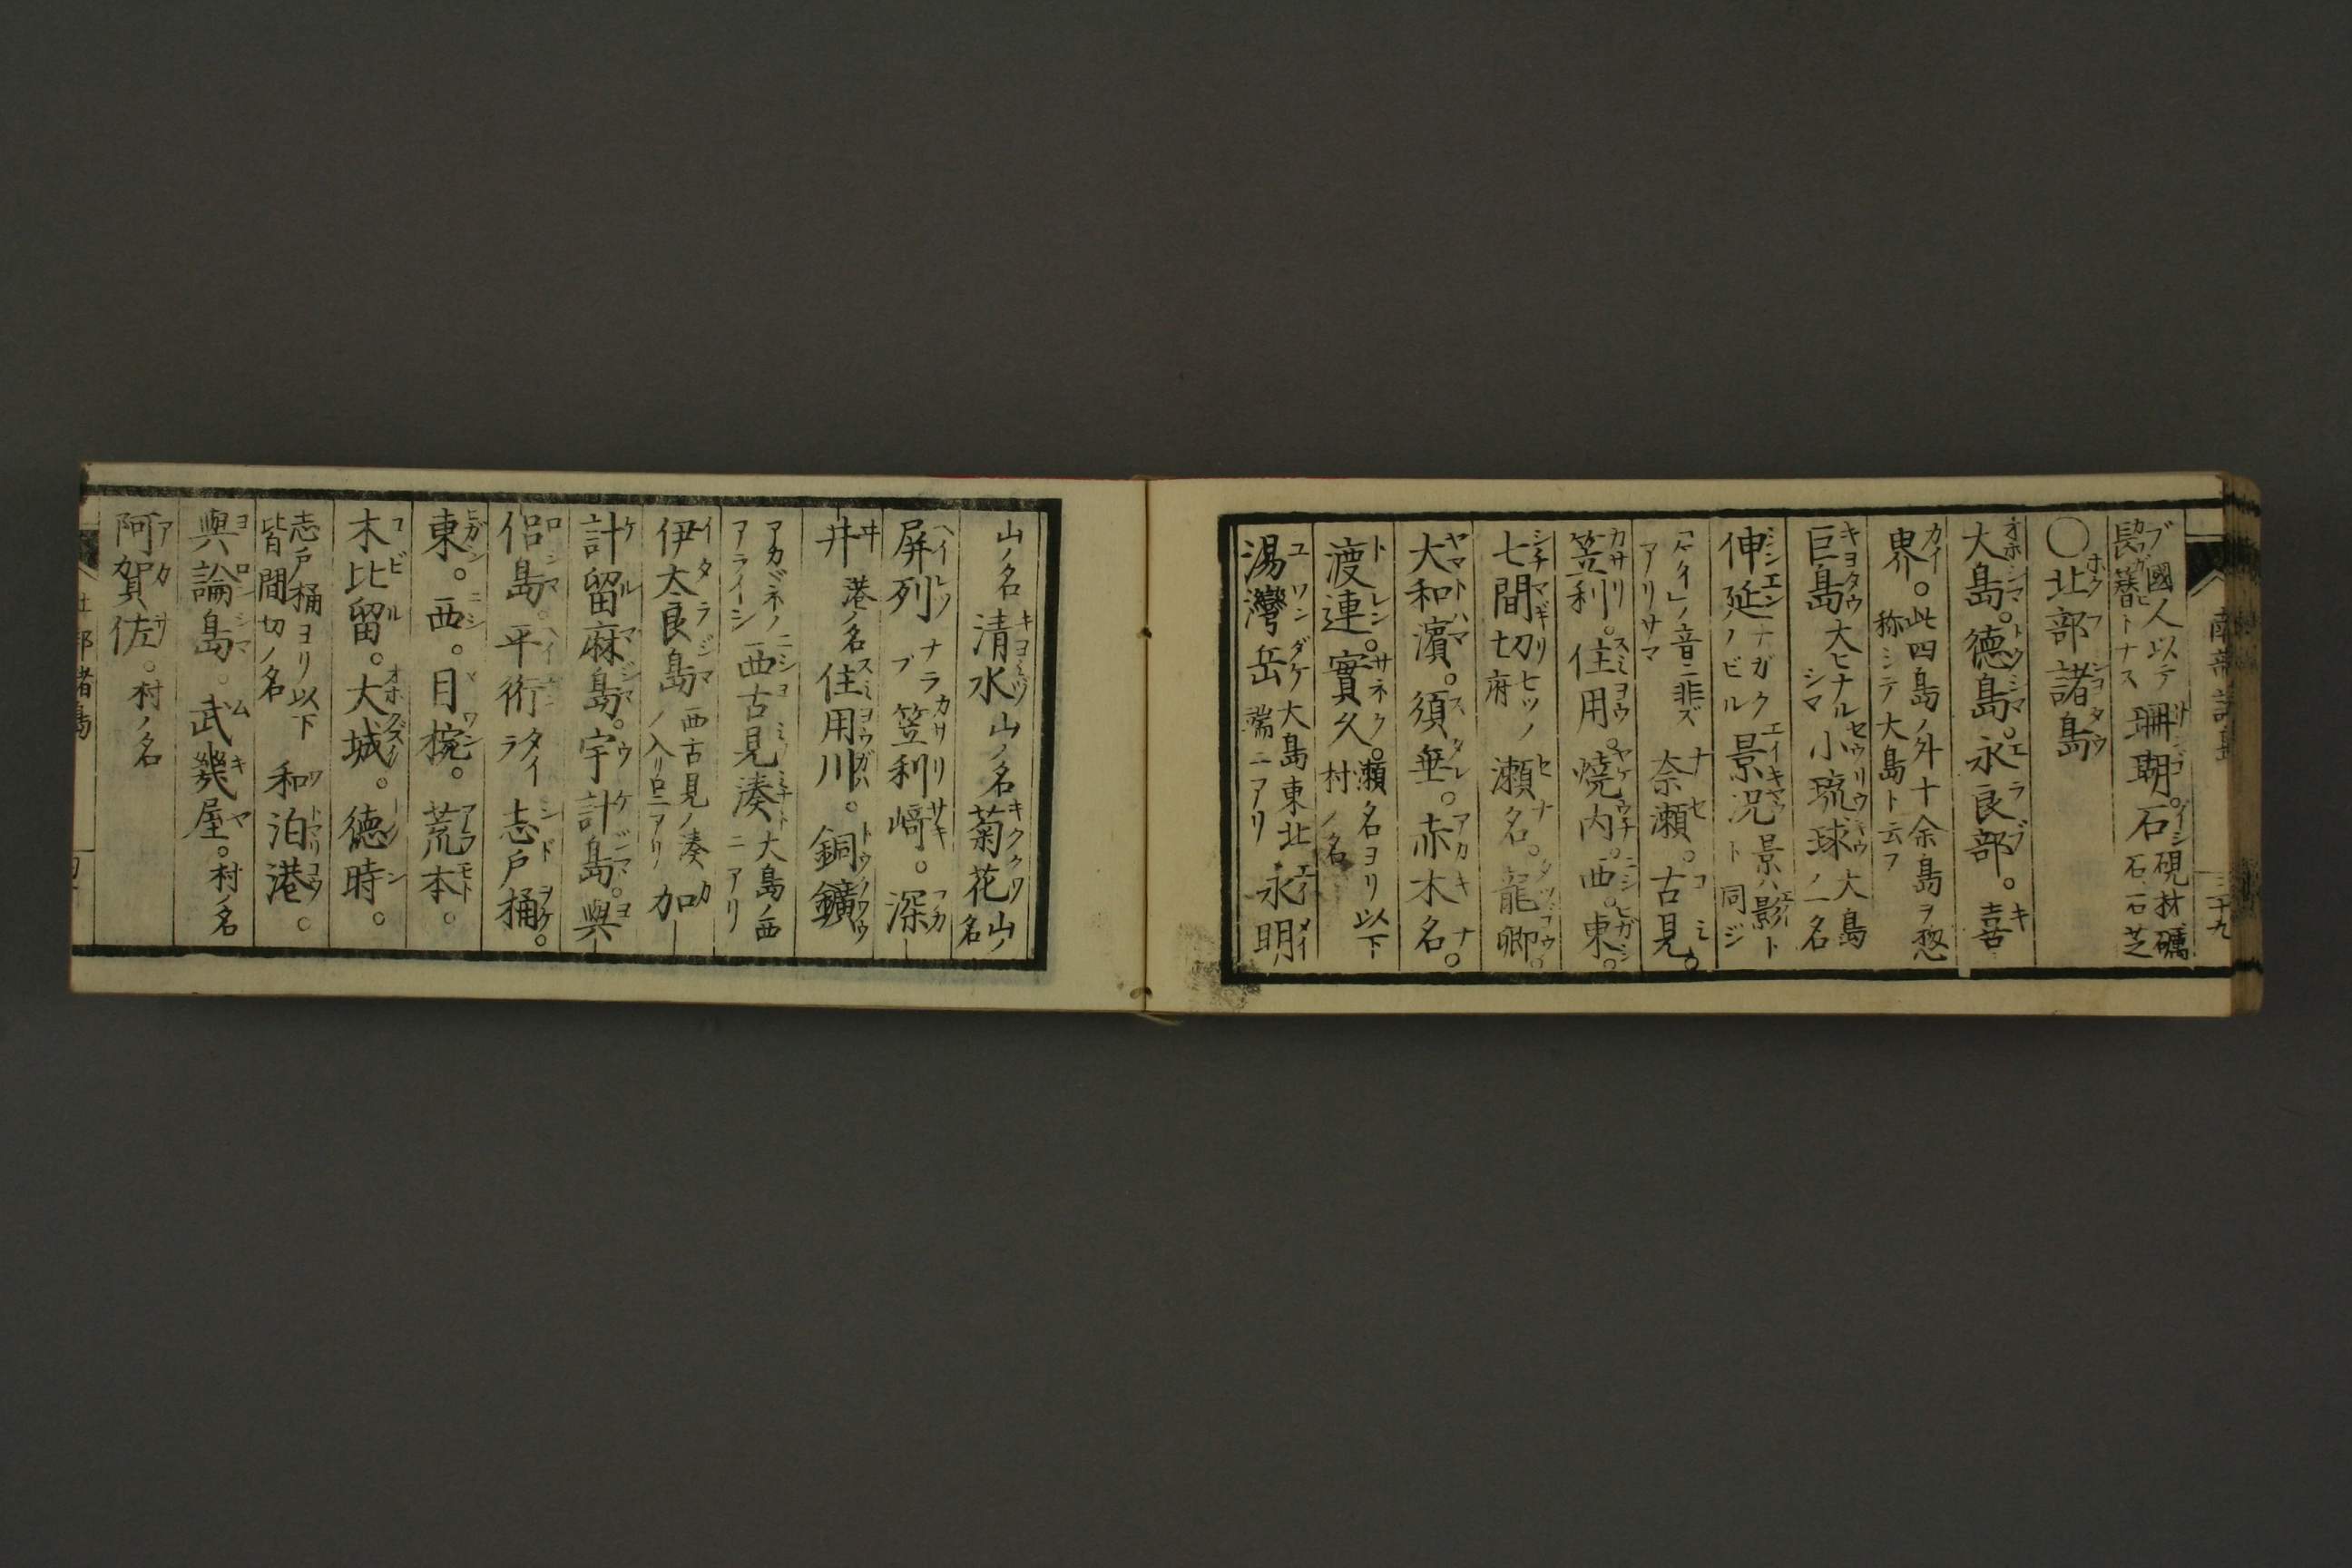 國人以テ 珊瑚石。硯材礪
長簪トナス 石、一石芝
〇北部諸島
大島。徳島。永良部。喜
界。此四島ノ外十余島ヲ惣
称シテ大島ト云フ
巨島 大ヒナル 小琉球 大島
シマ ノ一名
伸延 ナガク 景况 景ハ影ト
ノビル ト同ジ
「ケイ」ノ音ニ非ズ 奈瀬。古見。
アリサマ
笠利。住用。燒内。西。東。
七間切 七ツノ 瀬名。龍郷。
府
大和濵。須垂。赤木名。
渡連。實久。瀬名ヨリ以下
村ノ名
湯灣岳 大島東北 永明
端ニアリ
山ノ名 清水 山ノ名 菊花 山ノ
名
屏列 ナラ 笠利﨑。深
ブ
井 港ノ名 住用川。銅鑛
アカガネノ 西古見湊 大島ノ西
アライシ ニアリ
伊太良島 西古見ノ湊 加
ノ入リ口ニアリ
計留麻島。宇計島。與
侶島。平術 タイ 志戸桶。
ラ
東。西。目椀。荒木。
木比留。大城。徳時。
志戸桶ヨリ以下 和泊港。
皆間切ノ名
與論島。武幾屋。村ノ名
阿賀佐。村ノ名
南部諸島 三十九
北部諸島